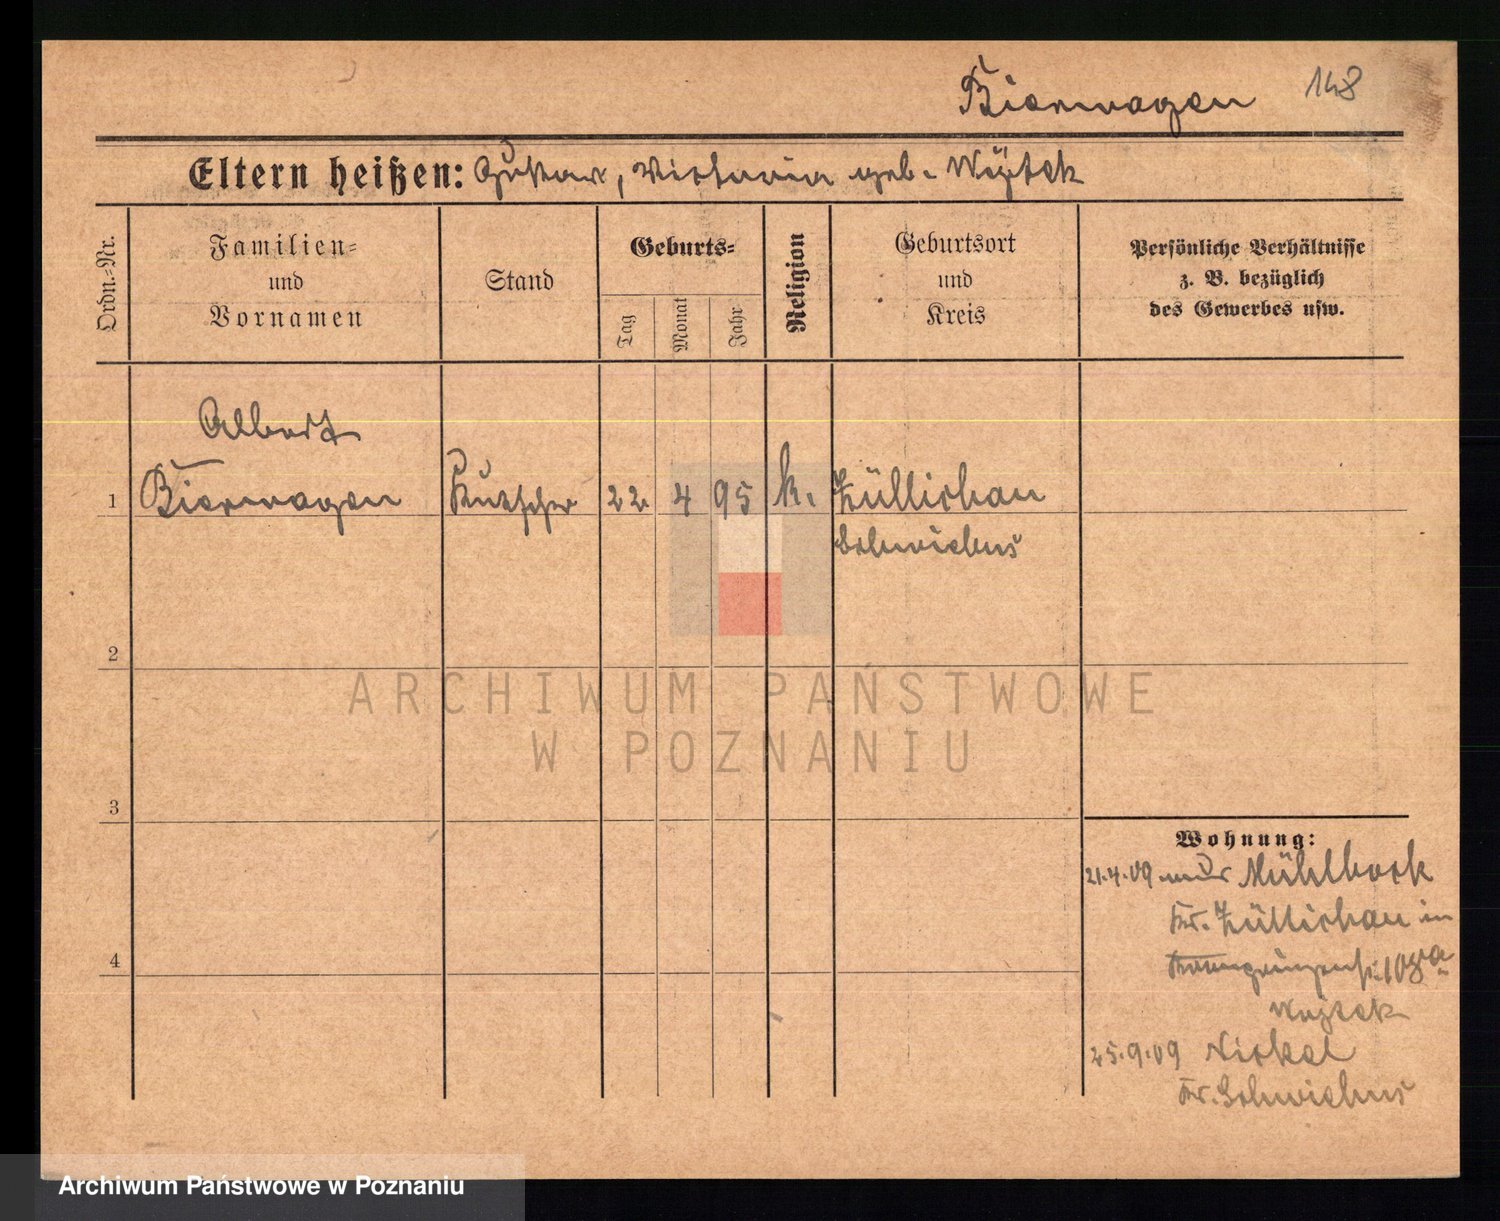 Bierwagen 148
Eltern heißen: Gustav, Victoria geb. Wojtek
Ordn.=Nr.
Familien=
und
Vornamen
Stand
Geburts=
Tag
Monat
Jahr
Religion
Geburtsort
und
Kreis
Persönliche Verhältnisse
z. B. bezüglich
des Gewerbes usw.
Albert
1 Bierwagen Kutscher 22 4 95 k. Züllichau
Schwiebus
2
3
4
Wohnung:
21.4.09 Mühlbock
Kr. Züllichau in
10
Wojtek
25.9.09 Nickel
Kr. Schwiebus
ARCHIWUM PAŃSTWOWE
W POZNANIU
Archiwum Państwowe w Poznaniu